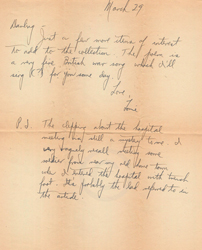 March 29
Darling
Just a few more items of interest
to add to the collection. This poem is
a very fine British war song which I'll
sing (?) for you some day.
Love,
Tome
P.S. The clipping about the hospital
meeting is still a mystery to me. I
very vaguely recall meeting some
when I visited the hospital with trench
foot. He's probably the lad referred to in
the article.